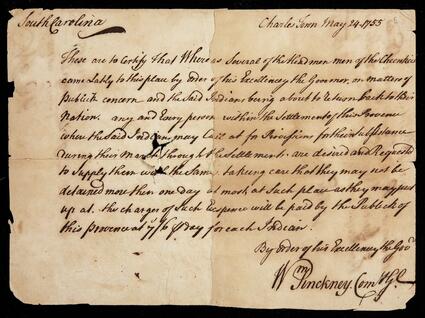 South Carolina
Charles Town May 24. 1755
These are to Certify that Whereas Several of the Headmen men of the Cherokees
came Lately to this place by order of his Excellency the Governor, on matters of
Publick concern and the Said Indians being about to return back to their
Nation. any and Every person within the Settlements of this Province
where the Said Indians may Call at for Provisions for their Subsistance
during their March through the Settlements, are desired and Requested
to Supply them with the Same, taking care that they may not be
detained more then one day at most, at Such place as they may put
up at. the charges of Such Expence will be paid by the Publick of
this Province at 7/6 P day for each Indian.
By order of his Excellency the Govr
Wm Pinckney. Com Gl.